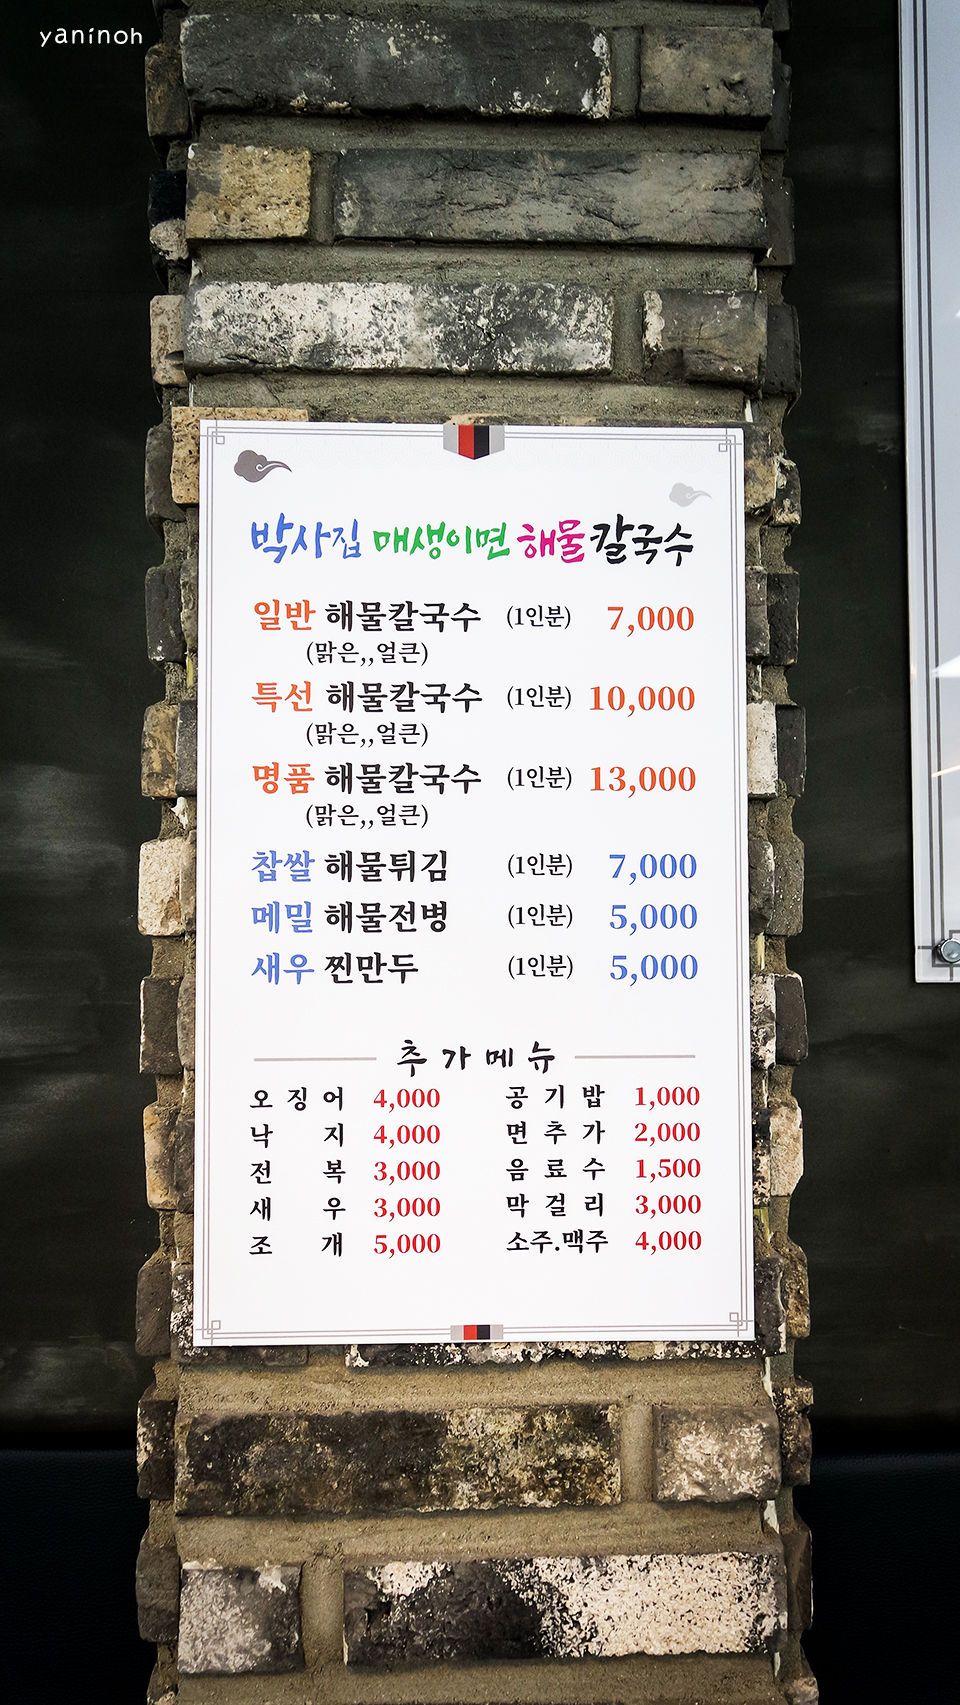 yaninoh
박사집 매생이면 해물칼국수
일반 해물칼국수 (1인분) 7,000
(맑은,,얼큰)
특선 해물칼국수 (1인분) 10,000
(맑은,,얼큰)
명품 해물칼국수 (1인분) 13,000
(맑은,,얼큰)
찹쌀 해물튀김 (1인분) 7,000
메밀 해물전병 (1인분) 5,000
새우 찐만두 (1인분) 5,000
추가메뉴
오징어 4,000 공기밥 1,000
낙지 4,000 면추가 2,000
전복 3,000 음료수 1,500
새우 3,000 막걸리 3,000
조개 5,000 소주.맥주 4,000